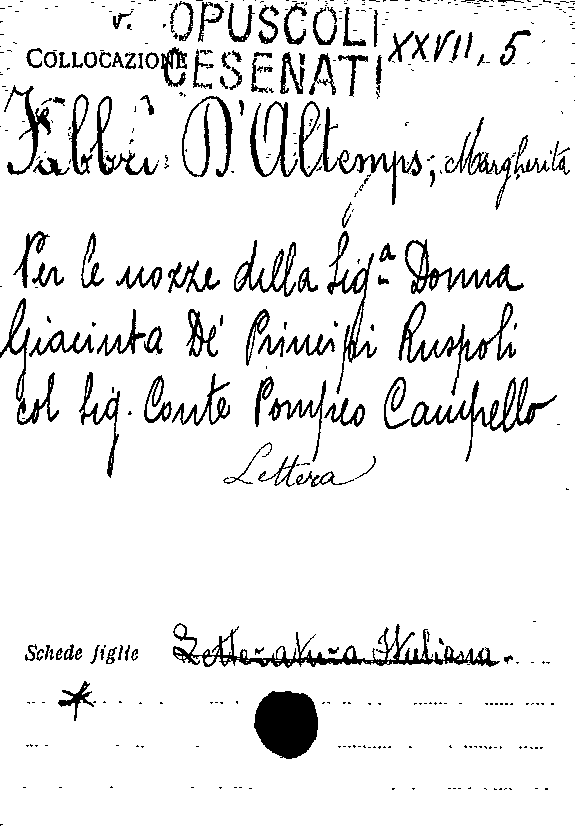 v. OPUSCOLI
COLLOCAZIONE CESENATI XXVII, 5
Fabbri D'Altemps, Margherita
Per le nozze della Sig.a Donna
Giacinta De' Principi Ruspoli
col Sig. Conte Pompeo Campello
Lettera
Schede figlie Letteratura Italiana.
*